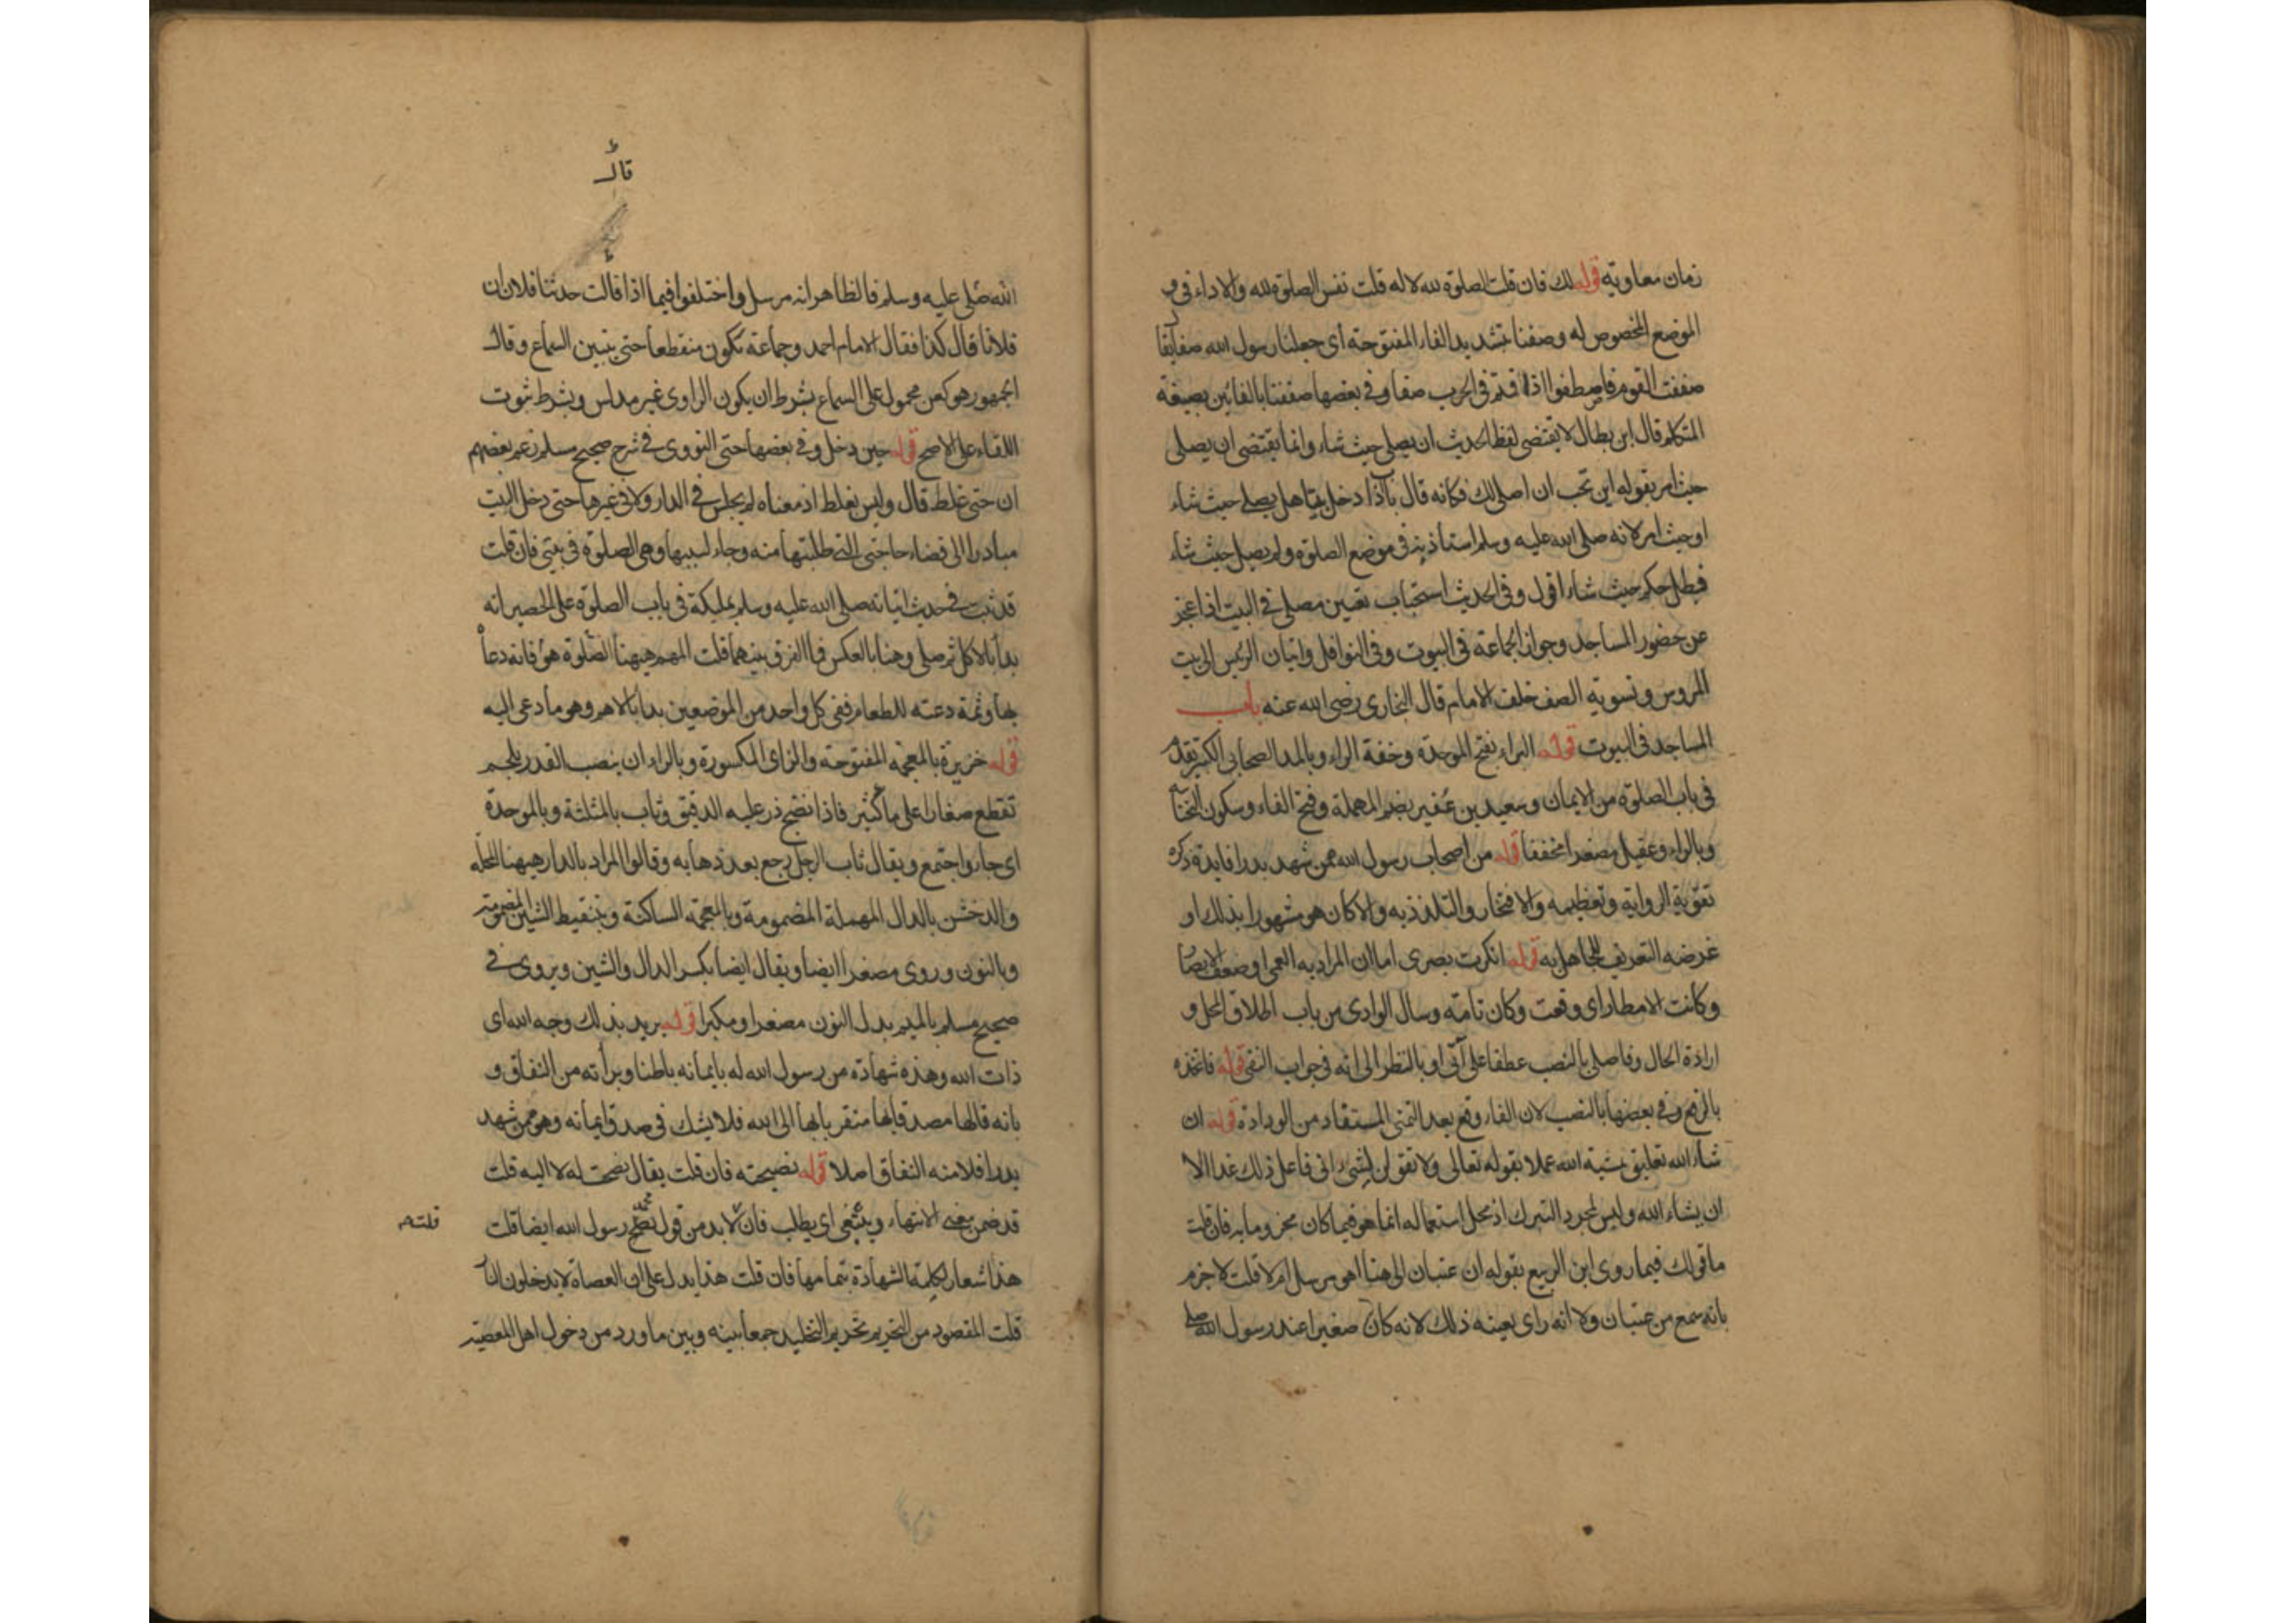 زمان معاوية قوله لك فان قلت الصلوة لله لا له قلت نفس الصلوة لله والاداء في
الموضع المخصوص له وصففنا بتشديد الفاء المفتوحة اى جعلنا رسول الله صفا يقا
صففت القوم فاصطفوا اذا في الحرب صفا وفي بعضها صففنا بالفائين بصيغة
المتكلم قال ابن بطال لا يقتضى لفظ الحديث ان يصلى حيث شاء وانما يقتضى ان يصلى
حيث امر بقوله اين تحب ان اصلى لك فكانه قال باب اذا دخل بيتا هل يصلى حيث شاء
او حيث امر لانه صلى الله عليه وسلم استاذنه في موضع الصلوة ولم يصل حيث شاء
فبطل حكم حيث شاء اقول وفي الحديث استحباب تعيين مصلى في البيت اذا عجز
عن حضور المساجد وجواز الجماعة في البيوت وفي النوافل واتيان الرئيس الى بيت
المروس وتسوية الصف خلف الامام قال البخارى رضى الله عنه باب
المساجد في البيوت قوله البراء بفتح الموحدة وخفة الراء وبالمد الصحابى الكبير تقدم
في باب الصلوة من الايمان وسعيد بن عفير بضم المهملة وفتح الفاء وسكون التحتانية
وبالراء وعقيل مصغرا مخففا قوله من اصحاب رسول الله ممن شهد بدرا فايدة ذكره
تقوية الرواية وتعظيمه والافتخار والتلذذ به والا كان هو مشهورا بذلك او
غرضه التعريف للجاهل به قوله انكرت بصرى اما ان المراد به العمى او ضعف الابصار
وكانت الامطار اى وقعت وكان تامة وسال الوادى من باب اطلاق المحل و
ارادة الحال وفاصلى بالنصب عطفا على آتى او بالنظر الى انه في جواب النفى قوله فاتخذه
بالرفع وفي بعضها بالنصب لان الفاء وقع بعد التمنى المستفاد من الودادة قوله ان
شاء الله تعليق بمشية الله عملا بقوله تعالى ولا تقولن لشئ انى فاعل ذلك غدا الا
ان يشاء الله وليس لمجرد التبرك اذ محل استعماله انما هو فيما كان مجزوما به فان قلت
ما قولك فيما روى ابن الربيع بقوله ان عتبان الى هنا اهو مرسل ام لا قلت لا جزم
بانه سمع من عتبان ولا انه راى بعينه ذلك لانه كان صغيرا عند رسول الله صلى
قال
الله صلى عليه وسلم فالظاهر انه مرسل واختلفوا فيما اذا قالت حدثنا فلان ان
فلانا قال كذا فقال الامام احمد وجماعة تكون منقطعا حتى يتبين السماع وقال
الجمهور هو كعن محمول على السماع بشرط ان يكون الراوى غير مدلس وبشرط ثبوت
اللقاء على الاصح قوله حين دخل وفي بعضها حتى النووى في شرح صحيح مسلم زعم بعضهم
ان حتى غلط قال وليس بغلط اذ معناه لم يجلس في الدار ولا في غيرها حتى دخل البيت
مبادرا الى قضاء حاجتى التى طلبتها منه وجاء لسببها وهى الصلوة في بيتى فان قلت
قد ثبت في حديث اتيانه صلى الله عليه وسلم بمليكة في باب الصلوة على الحصير انه
بدأ بالاكل ثم صلى وهنا بالعكس فما الفرق بينهما قلت المهم ههنا الصلوة هو فانه دعاه
بها وثمة دعته للطعام ففى كل واحد من الموضعين بدا بالاهم وهو ما دعى اليه
قوله خزيرة بالمعجمة المفتوحة والزاى المكسورة وبالراء ان ينصب القدر بلحم
تقطع صغارا على ماء كثير فاذا نضج ذر عليه الدقيق وثاب بالمثلثة وبالموحدة
اى جاء واجتمع ويقال ثاب الرجل رجع بعد ذهابه وقالوا المراد بالدار ههنا المحلة
والدخشن بالدال المهملة المضمومة وبالمعجمة الساكنة وبتنقيط الشين المضمومة
وبالنون وروى مصغرا ايضا ويقال ايضا بكسر الدال والشين ويروى في
صحيح مسلم بالميم بدل النون مصغرا ومكبرا قوله يريد بذلك وجه الله اى
ذات الله وهذه شهادة من رسول الله له بايمانه باطنا وبرأته من النفاق و
بانه قالها مصدقا بها متقربا بها الى الله فلا يشك في صدق ايمانه وهو ممن شهد
بدرا فلا منه النفاق اصلا قوله نصيحته فان قلت يقال نصحت له لا اليه قلت
قد ضمن معنى الانتهاء ويبتغى اى يطلب فان لا بد من قول محمد رسول الله ايضا قلت
قلت
هذا شعار لكلمة الشهادة بتمامها فان قلت هذا يدل على ان العصاة لا يدخلون النار
قلت المقصود من التحريم تحريم التخليد جمعا بينه وبين ما ورد من دخول اهل المعصية